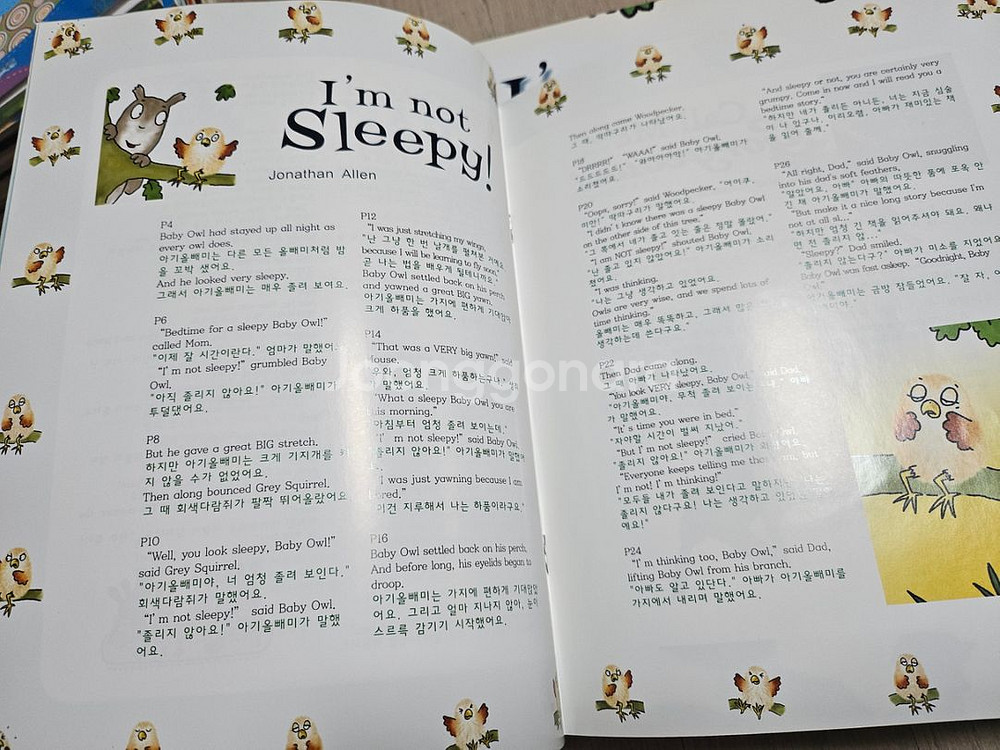 I'm not
Sleepy!
Jonathan Allen
P4
Baby Owl had stayed up all night as
every owl does.
아기올빼미는 다른 모든 올빼미처럼 밤
을 꼬박 샜어요.
And he looked very sleepy.
그래서 아기올빼미는 매우 졸려 보여요.
P6
"Bedtime for a sleepy Baby Owl!"
called Mom.
"이제 잘 시간이란다." 엄마가 말했어
"I'm not sleepy!" grumbled Baby
Owl.
"아직 졸리지 않아요!" 아기올빼미가
투덜댔어요.
P8
But he gave a great BIG stretch.
하지만 아기올빼미는 크게 기지개를 켜
지 않을 수가 없었어요.
Then along bounced Grey Squirrel.
그 때 회색다람쥐가 팔짝 뛰어올랐어요
P10
"Well, you look sleepy, Baby Owl!"
said Grey Squirrel.
"아기올빼미야, 너 엄청 졸려 보인다."
회색다람쥐가 말했어요.
"I'm not sleepy!" said Baby Owl.
"졸리지 않아요!" 아기올빼미가 말했
어요.
P12
"I was just stretching my wings,
"난 그냥 한 번 날개를 펼쳐본 거예요.
because I will be learning to fly soon."
곧 나는 법을 배우게 될테니까요."
Baby Owl settled back on his perch
and yawned a great BIG yawn.
아기올빼미는 가지에 편하게 기대앉아
크게 하품을 했어요.
P14
"That was a VERY big yawn!" said
Mouse.
"우와, 엄청 크게 하품하는구나."
말했어요.
"What a sleepy Baby Owl you are
this morning."
아침부터 엄청 졸려 보이는데."
"I'm not sleepy!" said Baby Owl.
졸리지 않아요!" 아기올빼미가 말했어
"I was just yawning because I am
bored."
이건 지루해서 나는 하품이라구요."
P16
Baby Owl settled back on his perch.
And before long, his eyelids began to
droop.
아기올빼미는 가지에 편하게 기대앉았
어요. 그리고 얼마 지나지 않아, 눈이
스르륵 감기기 시작했어요.
Then along came Woodpecker.
그 때, 딱따구리가 나타났어요.
P18
"DRRRR!" "WAAA!" said Baby Owl.
"드드드드드!" "와아아아앙!" 아기올빼미가
소리쳤어요.
P20
"Oops, sorry!" said Woodpecker. "어이쿠,
미안!" 딱따구리가 말했어요.
"I didn't know there was a sleepy Baby Owl
on the other side of this tree."
"그 쪽에서 네가 졸고 있는 줄은 정말 몰랐어."
"I am NOT sleepy!" shouted Baby Owl.
"난 졸고 있지 않았어요!" 아기올빼미가 소리
쳤어요.
"I was thinking.
"나는 그냥 생각하고 있었어요.
Owls are very wise, and we spend lots of
time thinking."
올빼미는 매우 똑똑하고, 그래서 많은
생각하는데 쓴다구요."
P22
Then Dad came along.
그 때 아빠가 나타났어요.
"You look VERY sleepy, Baby Owl," said Dad.
"아기올빼미야, 무척 졸려 보이는 아빠
가 말했어요.
"It's time you were in bed."
"자야할 시간이 벌써 지났어."
"But I'm not sleepy!" cried Baby
"졸리지 않아요!" 아기올빼미가
"Everyone keeps telling me that I am, but
I'm not! I'm thinking!"
"모두들 내가 졸려 보인다고 말하지만 나는
졸리지 않다구요! 나는 생각하고 있었
에요!"
P24
"I'm thinking too, Baby Owl," said Dad,
lifting Baby Owl from his branch.
"아빠도 알고 있단다." 아빠가 아기올빼미를
가지에서 내리며 말했어요.
"And sleepy or not, you are certainly very
grumpy. Come in now and I will read you a
bedtime story."
"하지만 네가 졸리든 아니든, 너는 지금 심술
이 나 있구나. 이리오렴. 아빠가 재미있는 책
을 읽어 줄께."
P26
"All right, Dad," said Baby Owl, snuggling
into his dad's soft feathers.
"알았어요, 아빠" 아빠의 따뜻한 품에 포옥 안
긴 채 아기올빼미가 말했어요.
"But make it a nice long story because I'm
not at all sl..."
"하지만 엄청 긴 책을 읽어주셔야 돼요. 왜냐
면 전 졸리지 않..."
"Sleepy?" Dad smiled.
"졸리지 않는다구?" 아빠가 미소를 지었어요
Baby Owl was fast asleep. "Goodnight, Baby
Owl."
아기올빼미는 금방 잠들었어요. "잘 자,